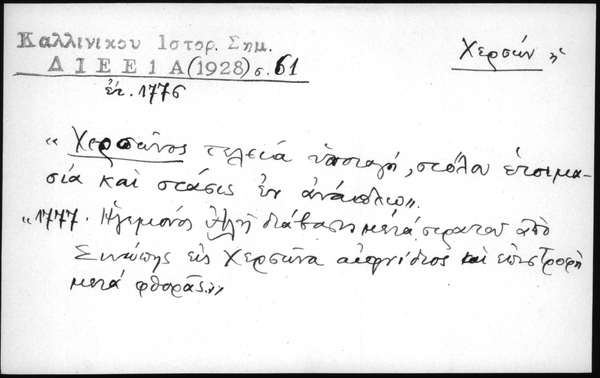 Καλλινικου Ιστορ. Σημ.
ΔΙΕΕ1Α(1928) σ. 61
ἐτ. 1776
Χερσών ἡ
« Χερσῶνος τελεία ὑποταγή, στόλου ἑτοιμα-
σία καὶ στάσις ἐν ἀνάπλῳ».
«1777. Ἡγεμονός Ἀλῆ διάβασις μετά στρατοῦ ἀπό
Σινώπης εἰς Χερσῶνα αἰφνίδιος καὶ ἐπιστροφή
μετά φθορᾶς.»